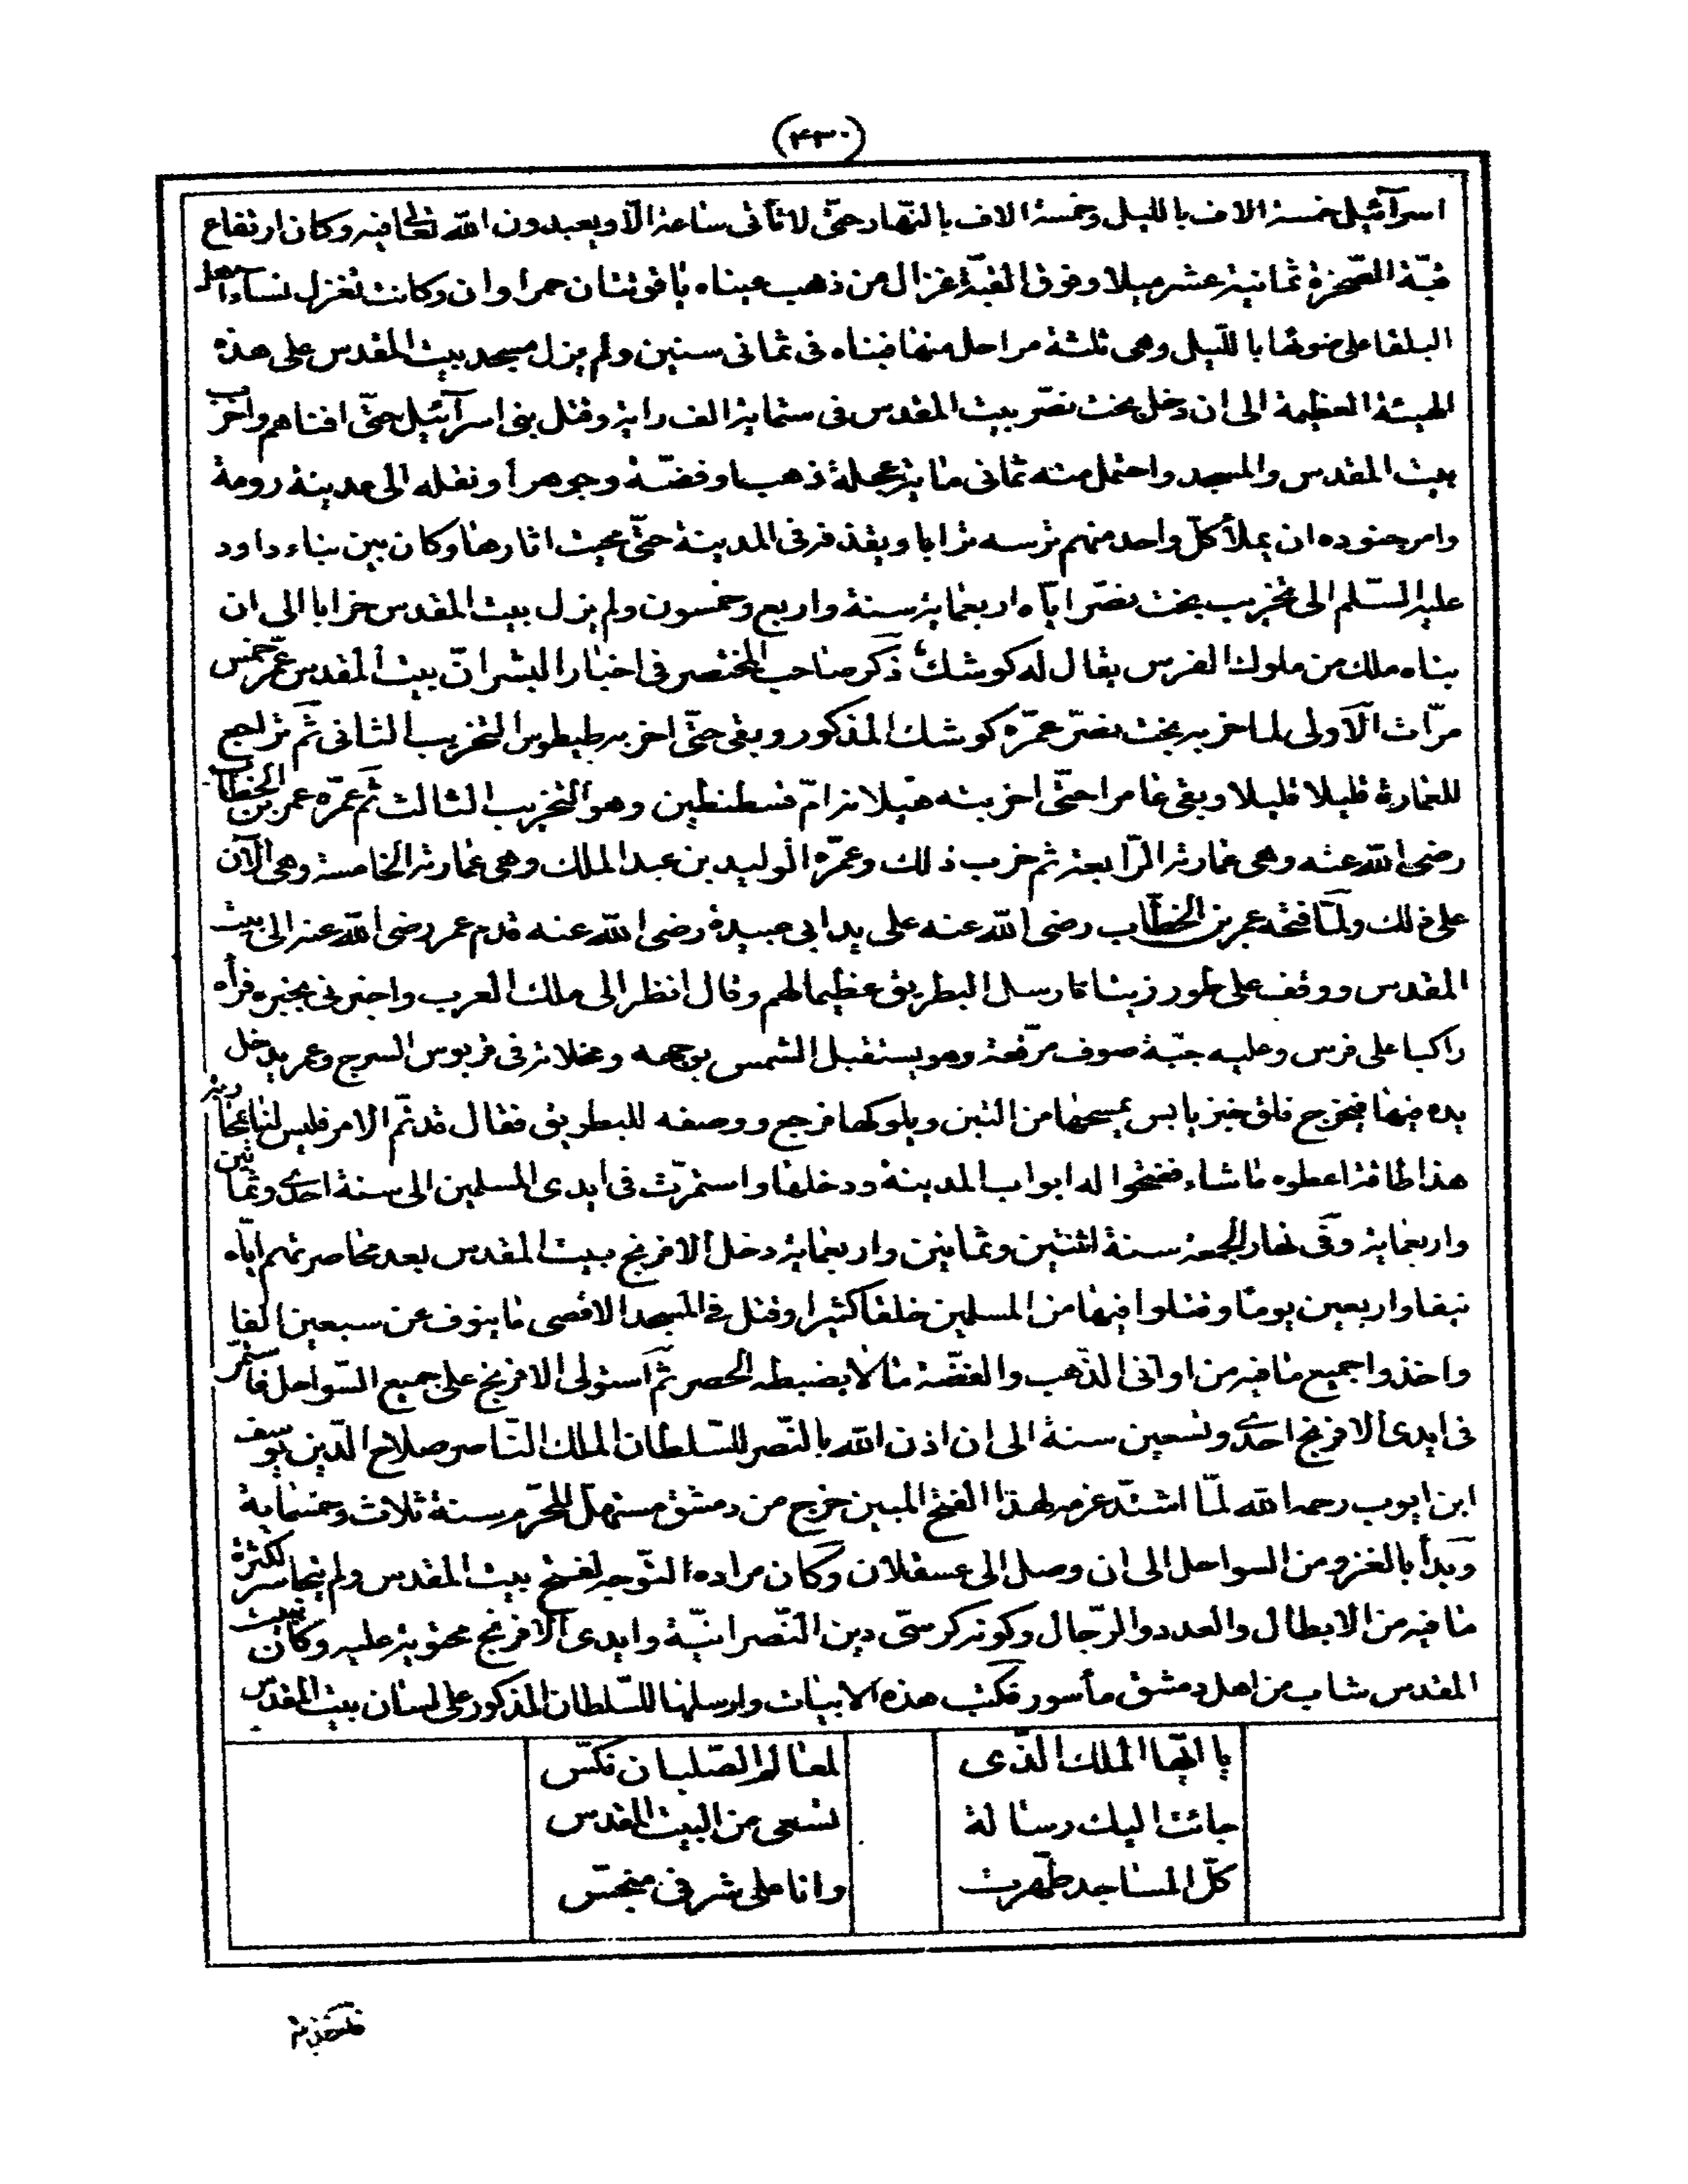 (٤٣٠)
اسرآئيل خمسة الاف بالليل وخمسة الاف بالنهار حتّى لا تأتى ساعة الّا ويعبدون الله تعالى فيه وكان ارتفاع
قبّة الصّخرة ثمانية عشر ميلا وفوق القبّة غزال من ذهب عيناه ياقوتتان حمراوان وكانت تغزل نساء اهل
البلقا على ضوئها بالليل وهى ثلثة مراحل منها فبناه فى ثمانى سنين ولم يزل مسجد بيت المقدس على هذه
الهيئة العظيمة الى ان دخل بخت نصّر بيت المقدس فى ستماية الف راية وقتل بنى اسرآئيل حتّى افناهم واخرب
بيت المقدس والمسجد واحتمل منه ثمانى ماية عجلة ذهبا وفضّة وجوهرا ونقله الى مدينة رومة
وامر جنوده ان يملأ كلّ واحد منهم ترسه ترابا ويقذفه فى المدينة حتّى محيت اثارها وكان بين بناء داود
عليه السّلم الى تخريب بخت نصّر ايّاه اربعماية سنة واربع وخمسون ولم يزل بيت المقدس خرابا الى ان
بناه ملك من ملوك الفرس يقال له كوشك ذكر صاحب المختصر فى اخبار البشر انّ بيت المقدس عمّر خمس
مرّات الاولى لما خربه بخت نصّر عمّره كوشك المذكور وبقى حتّى اخربه طيطوس التخريب الثانى ثمّ تراجع
للعمارة قليلا قليلا وبقى عامرا حتّى اخربته هيلانة امّ قسطنطين وهو التخريب الثالث ثمّ عمّره عمر بن الخطّاب
رضى الله عنه وهى عمارته الرّابعة ثم خرب ذلك وعمّره الوليد بن عبد الملك وهى عمارته الخامسة وهى الآن
على ذلك ولمّا فتحه عمر بن الخطّاب رضى الله عنه على يد ابى عبيدة رضى الله عنه قدم عمر رضى الله عنه الى بيت
المقدس ووقف على طور زيتا فارسل البطريق عظيما لهم وقال انظر الى ملك العرب واخبرنى بخبره فرأه
راكبا على فرس وعليه جبّة صوف مرقّعة وهو يستقبل الشمس بوجهه ومخلاته فى قربوس السرج وعمر يدخل
يده فيها فيخرج فلق خبز يابس يمسحها من التبن ويلوكها فرجع ووصفه للبطريق فقال قد تمّ الامر فليس لنا بمحاربة
هذا طاقة اعطوه ما شاء ففتحوا له ابواب المدينة ودخلها واستمرّت فى ايدى المسلمين الى سنة احدى وثمانين
واربعماية وفى نهار الجمعة سنة اثنتين وثمانين واربعماية دخل الافرنج بيت المقدس بعد محاصرتهم ايّاه
نيفا واربعين يوما وقتلوا فيها من المسلمين خلقا كثيرا وقتل فى المسجد الاقصى ما ينوف عن سبعين الفا
واخذوا جميع ما فيه من اوانى الذّهب والفضّة ما لا يضبطه الحصر ثمّ استولى الافرنج على جميع السّواحل فاستمرّ
فى ايدى الافرنج احدى وتسعين سنة الى ان اذن الله بالنّصر للسّلطان الملك النّاصر صلاح الدّين يوسف
ابن ايوب رحمه الله لمّا اشتدّ عزمه لهذا الفتح المبين خرج من دمشق مستهلّ المحرّم سنة ثلاث وخمسماية
وبدأ بالغزو من السواحل الى ان وصل الى عسقلان وكان مراده التّوجه لفتح بيت المقدس ولم يتجاسر لكثرة
ما فيه من الابطال والعدد والرّجال وكونه كرسىّ دين النّصرانيّة وايدى الافرنج محتوية عليه وكان ببيت
المقدس شاب من اهل دمشق مأسور فكتب هذه الابيات وارسلها للسّلطان المذكور على لسان بيت المقدس
يا ايّها الملك الذّى لمعالم الصّلبان نكّس
جائت اليك رسالة تسعى من البيت المقدس
كلّ المساجد طهّرت وانا على شرفى منجّس